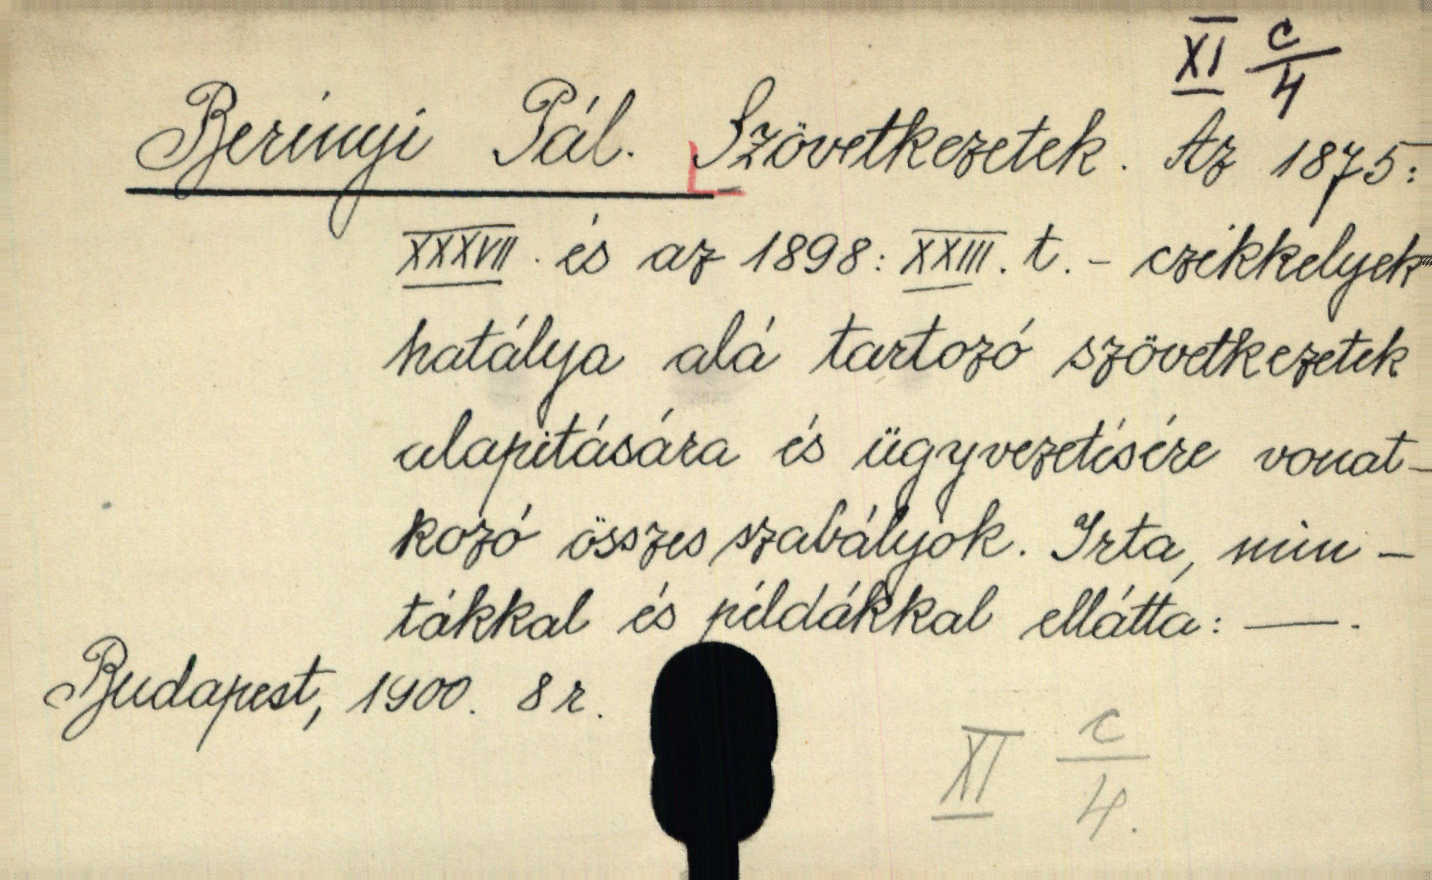 XI c/4
Berényi Pál. Szövetkezetek. Az 1875:
XXXVII. és az 1898: XXIII. t. - czikkelyek
hatálya alá tartozó szövetkezetek
alapítására és ügyvezetésére vonat-
kozó összes szabályok. Irta, min-
tákkal és példákkal ellátta: —.
Budapest, 1900. 8 r.
XI c/4.